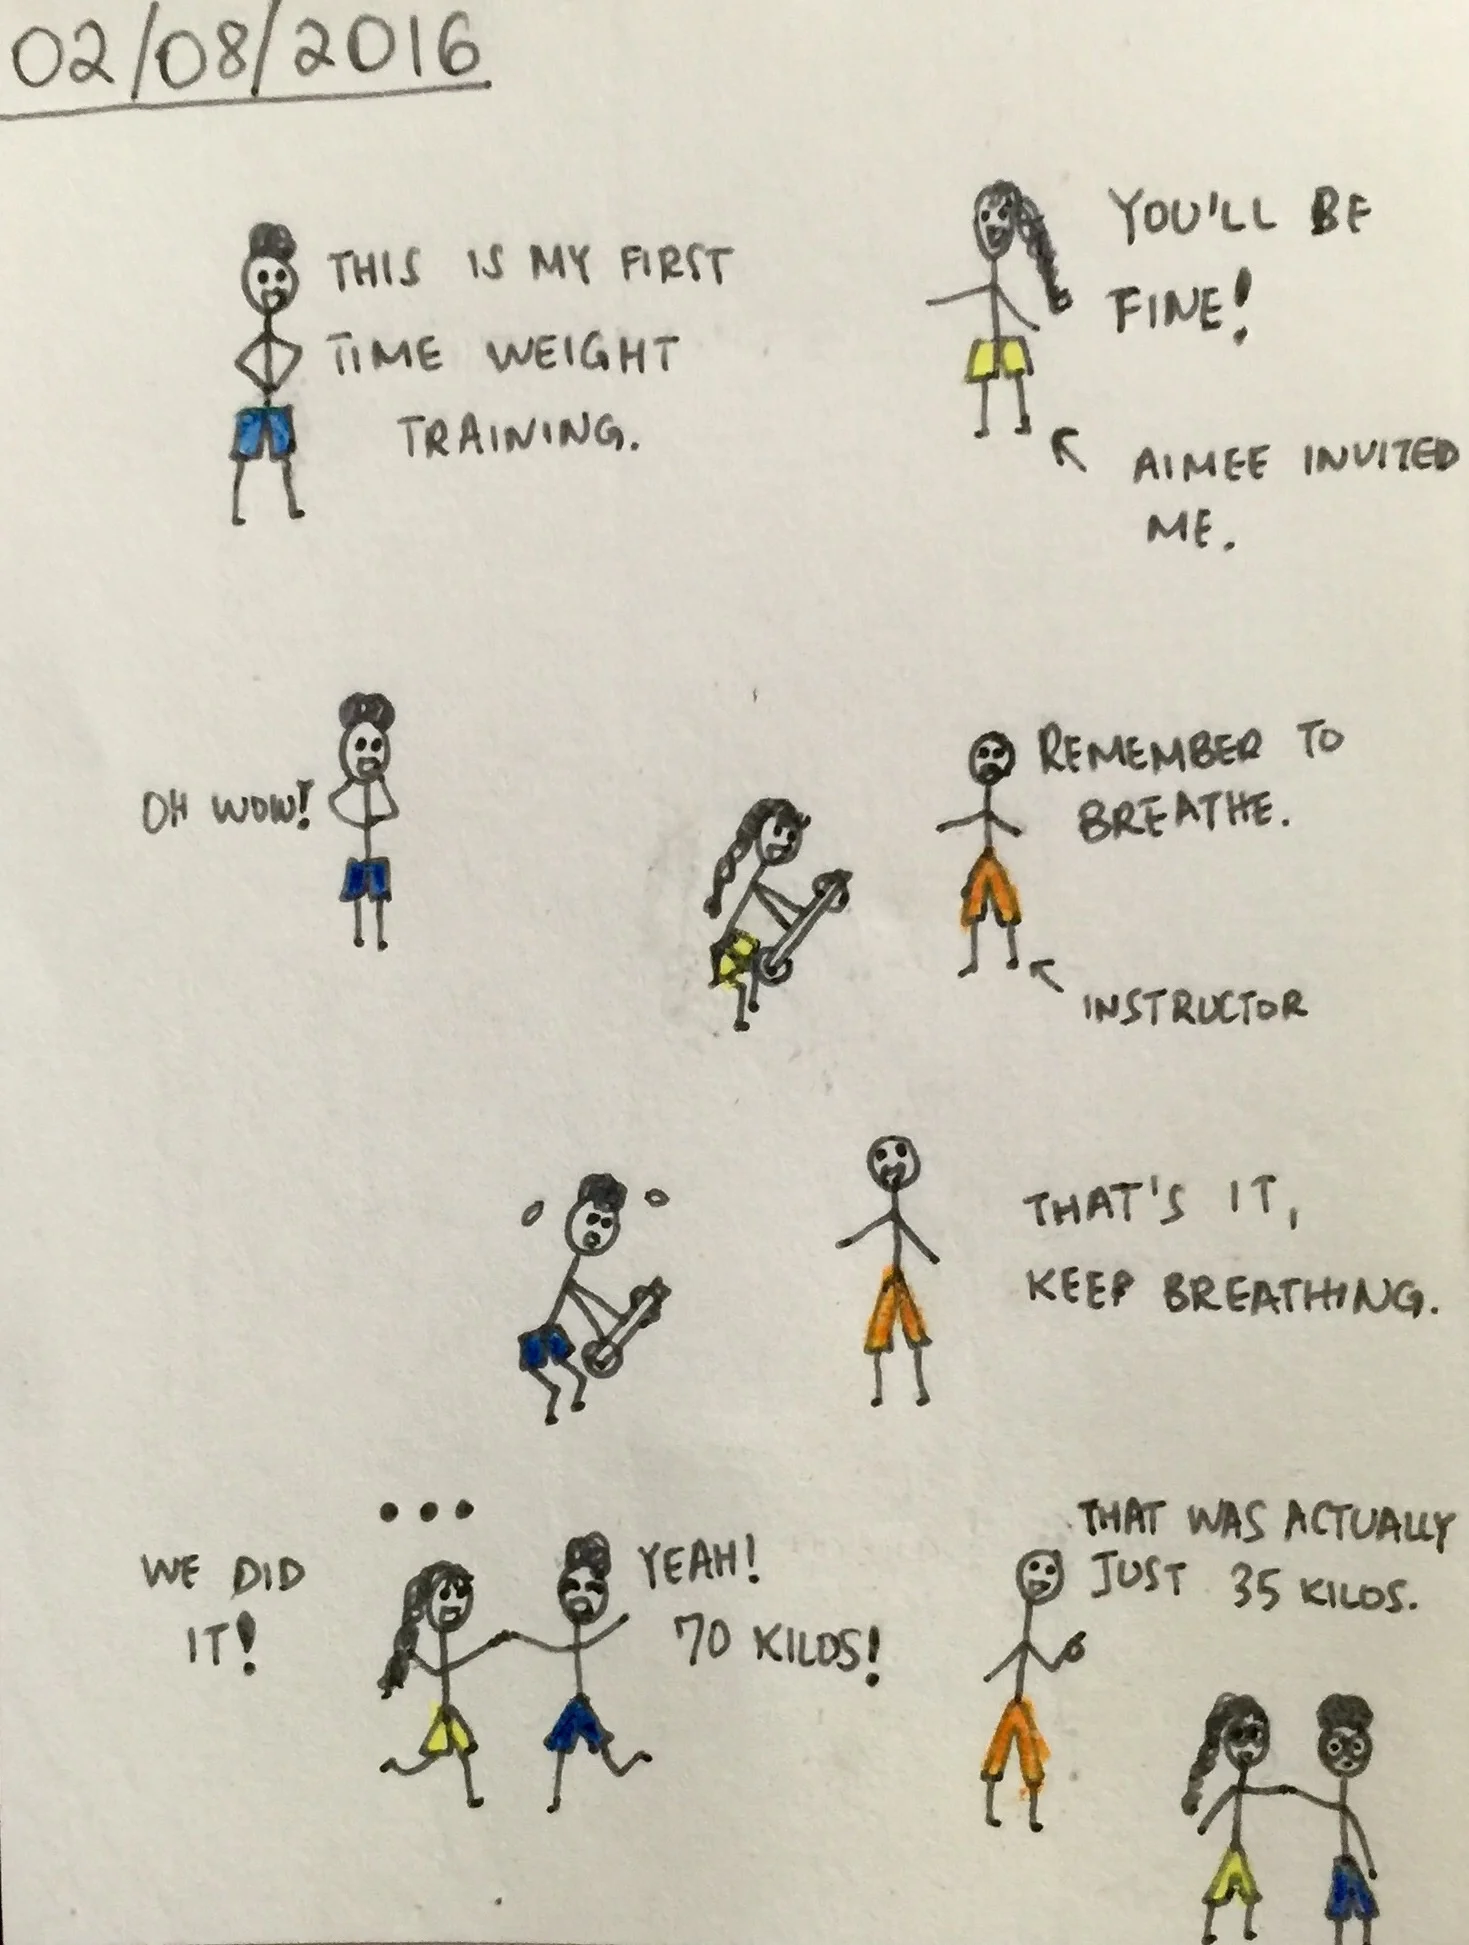 02/08/2016
THIS IS MY FIRST
TIME WEIGHT
TRAINING.
YOU'LL BE
FINE!
AIMEE INVITED
ME.
OH WOW!
REMEMBER TO
BREATHE.
INSTRUCTOR
THAT'S IT,
KEEP BREATHING.
...
WE DID
IT!
YEAH!
70 KILOS!
THAT WAS ACTUALLY
JUST 35 KILOS.